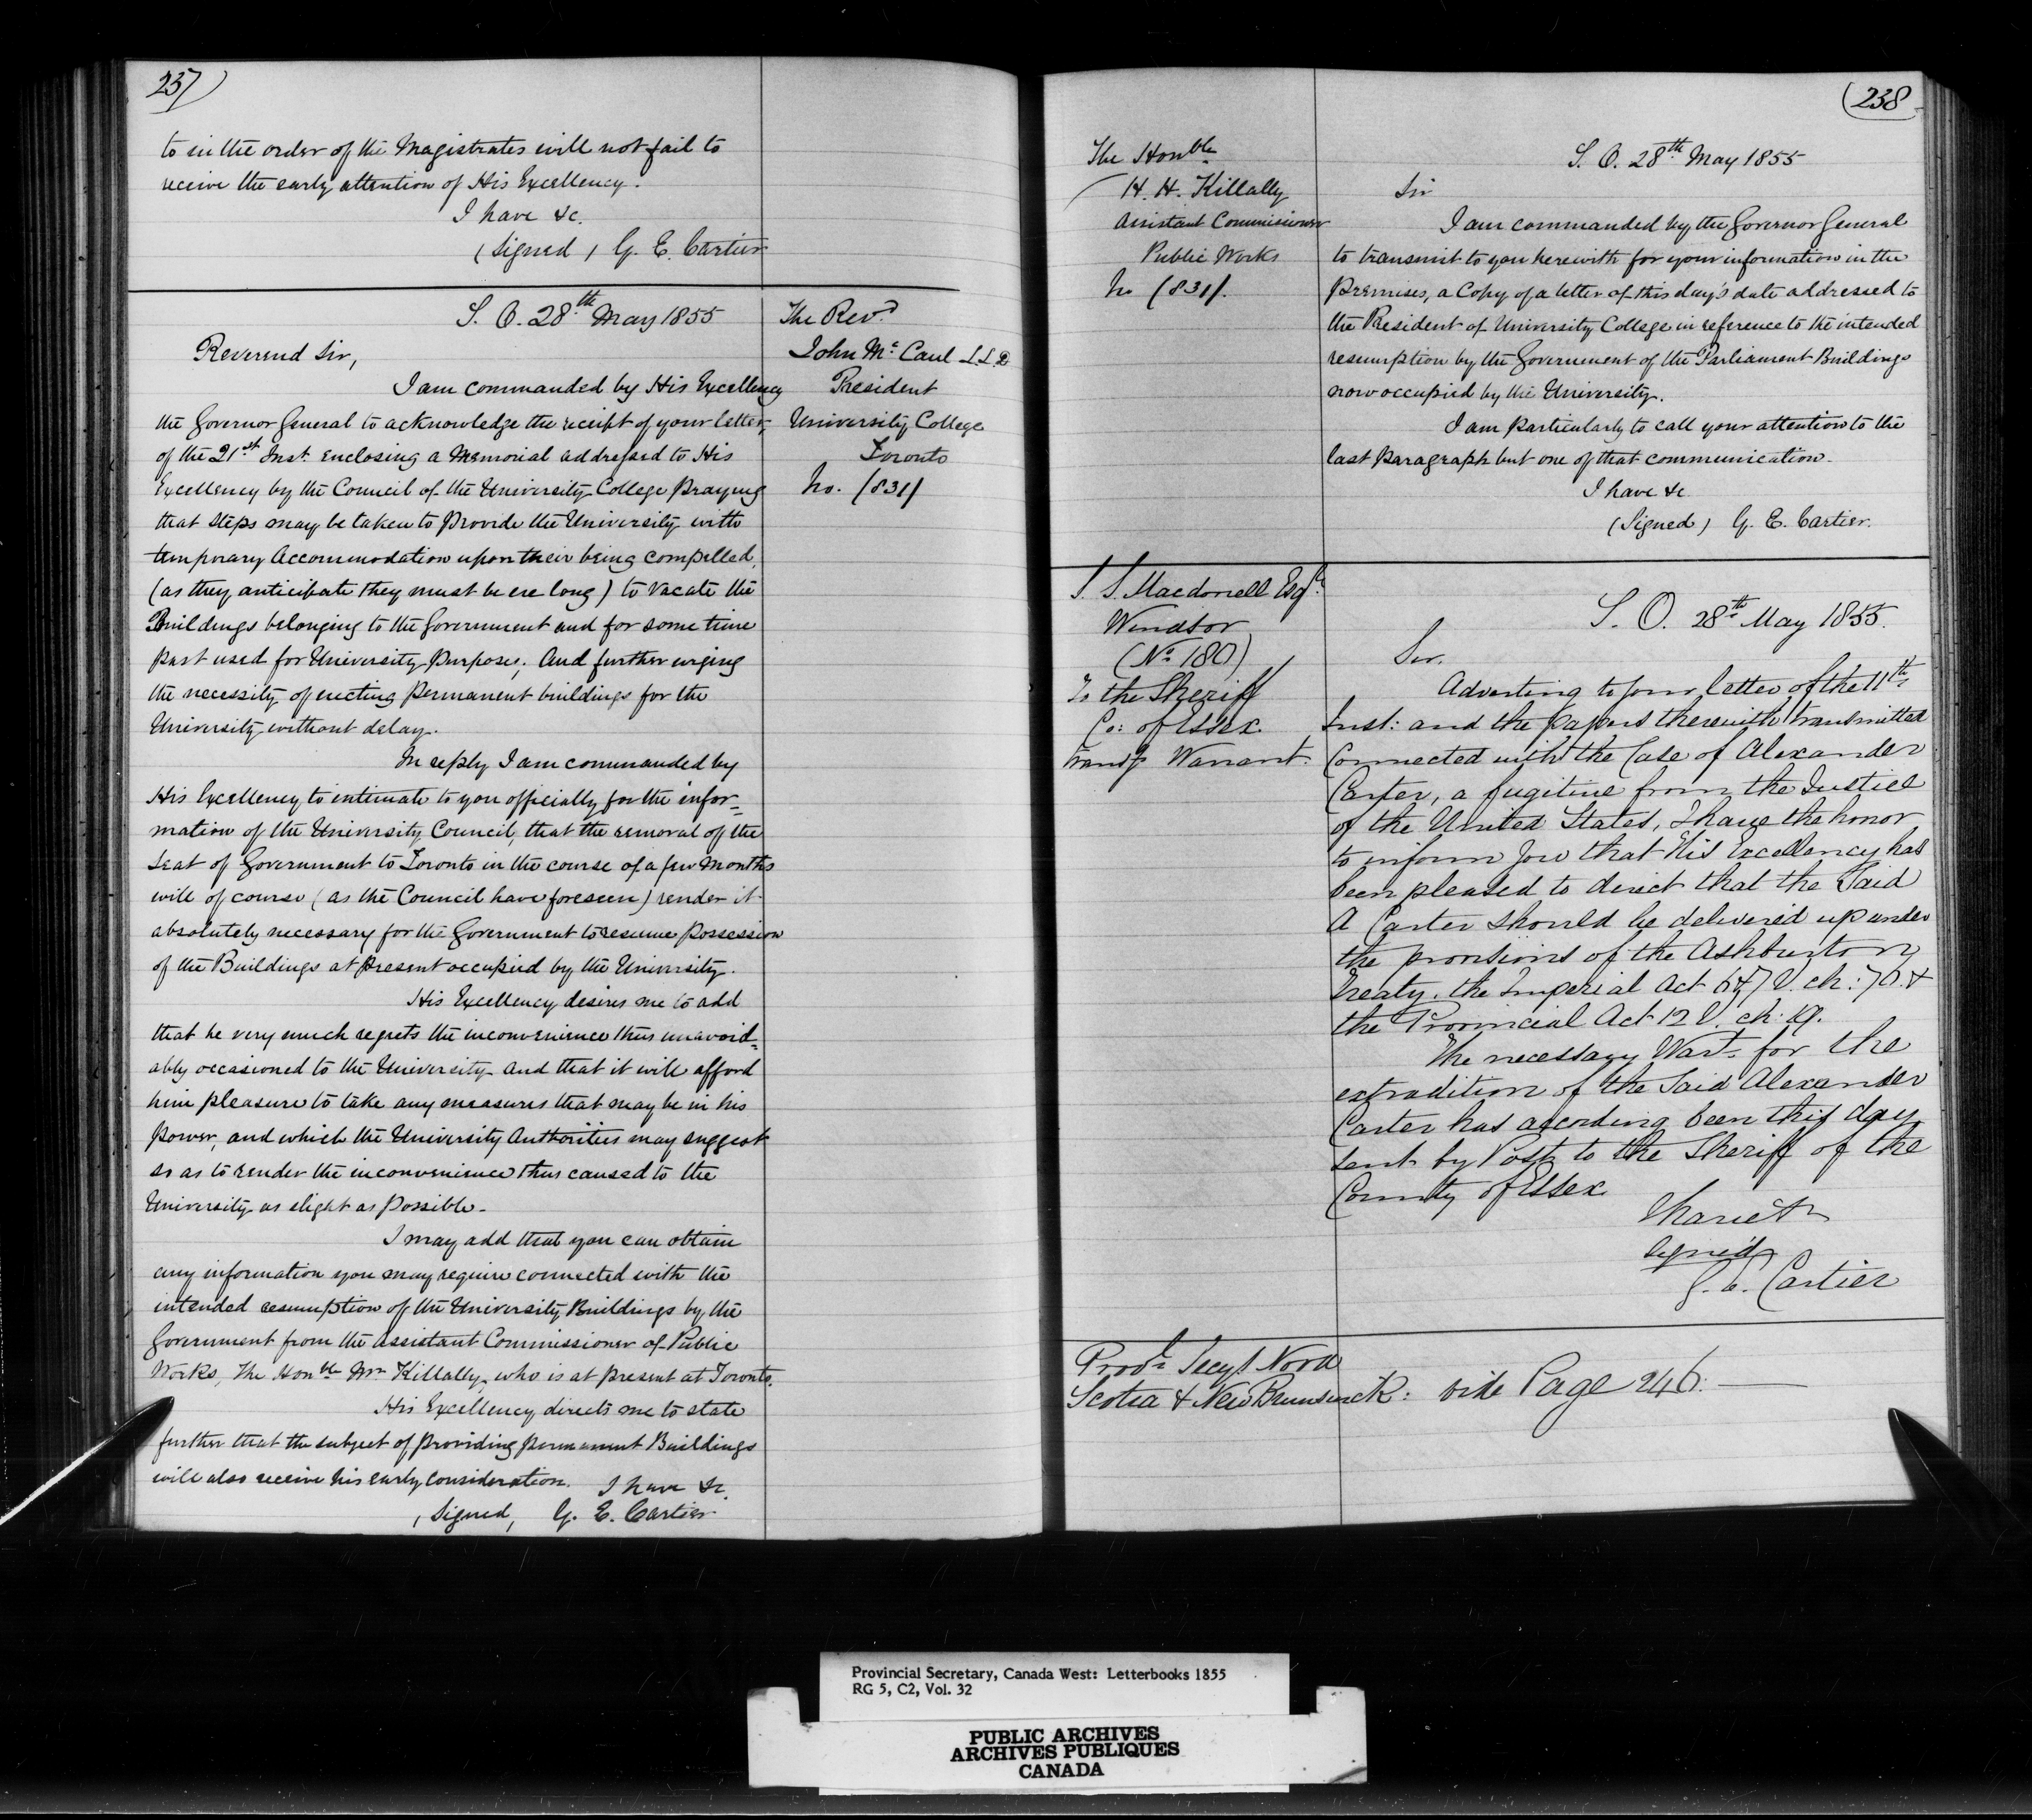 237)
to in the order of the Magistrates will not fail to
receive the early attention of His Excellency.
I have &c.
(Signed) G. E. Cartier
S. O. 28th May 1855
The Revd
John Mc Caul L.L.D
President
University College
Toronto
No. (831)
Reverend Sir,
I am commanded by His Excellency
the Governor General to acknowledge the receipt of your letter,
of the 21st Inst. enclosing a Memorial addressed to His
Excellency by the Council of the University College praying
that steps may be taken to provide the University with
temporary Accommodation upon their being compelled,
(as they anticipate they must be ere long) to vacate the
Buildings belonging to the Government and for some time
past used for University purposes; And further urging
the necessity of erecting permanent buildings for the
University without delay.
In reply I am commanded by
His Excellency to intimate to you officially for the infor=
mation of the University Council, that the removal of the
Seat of Government to Toronto in the course of a few Months
will of course (as the Council have foreseen) render it
absolutely necessary for the Government to resume possession
of the Buildings at present occupied by the University.
His Excellency desires me to add
that he very much regrets the inconvenience thus unavoid=
ably occasioned to the University and that it will afford
him pleasure to take any measures that may be in his
power, and which the University Authorities may suggest
so as to render the inconvenience thus caused to the
University as slight as possible.
I may add that you can obtain
any information you may require connected with the
intended resumption of the University Buildings by the
Government from the Assistant Commissioner of Public
Works, The Honble Mr Killally, who is at present at Toronto.
His Excellency directs me to state
further that the subject of providing permanent Buildings
will also receive his early consideration. I have &c.
(Signed) G. E. Cartier
(238
The Honble
H. H. Killally
Assistant Commissioner
Public Works
No (831).
S. O. 28th May 1855
Sir
I am commanded by the Governor General
to transmit to you herewith for your information in the
premises, a Copy of a letter of this day's date addressed to
the President of University College in reference to the intended
resumption by the Government of the Parliament Buildings
now occupied by the University.
I am particularly to call your attention to the
last paragraph but one of that communication.
I have &c
(Signed) G. E. Cartier.
S. S. Macdonell Esqr
Windsor
(No 180)
To the Sheriff
Co: of Essex
transg Warrant.
S. O. 28th May 1855.
Sir,
Adverting to your letter of the 11th
Inst: and the papers therewith transmitted
Connected with the Case of Alexander
Carter, a fugitive from the Justice
of the United States, I have the honor
to inform you that His Excellency has
been pleased to direct that the Said
A Carter should be delivered up under
the provisions of the Ashburton
Treaty, the Imperial Act 6 & 7 V. ch: 70. &
the Provincial Act 12 V. ch: 19.
The necessary Wart for the
extradition of the Said Alexander
Carter has according been this day
sent by Post to the Sheriff of the
County of Essex
I have &c
Signed
G. E. Cartier
Provl Secys Nova
Scotia & New Brunswick: vide Page 246.
Provincial Secretary, Canada West: Letterbooks 1855
RG 5, C2, Vol. 32
PUBLIC ARCHIVES
ARCHIVES PUBLIQUES
CANADA